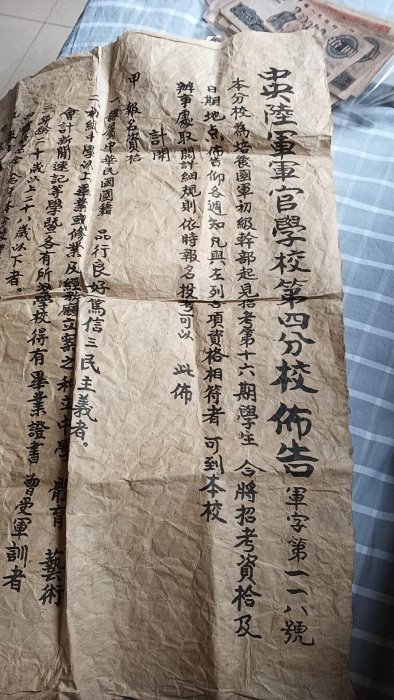 中央陸軍軍官學校第四分校佈告 軍字第一一八號
本分校為培養國軍初級幹部起見招考第十六期學生 今將招考資格及
日期地点佈告仰各週知凡與左列各項資格相符者可到本校
辦事處取閱詳細規則依時報名投考可以 此佈
計開
甲 報名資格
一 中華民國國籍 品行良好篤信三民主義者。
二 初級中學以上畢業或修業及經教廳立案之私立中學 體育 藝術
會計新聞速記等學 各有所 學校得有畢業證書 曾受軍訓者
三 年 二十歲以上二十八歲以下者。